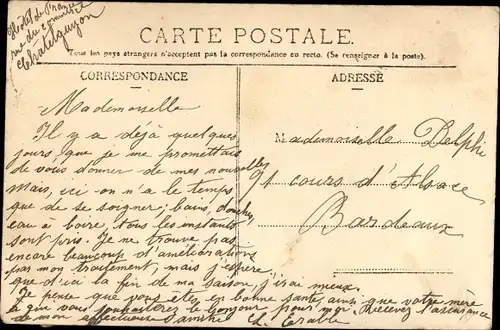 Hôtel de France
rue du commerce
Chatelguyon
CARTE POSTALE.
Tous les pays étrangers n'acceptent pas la correspondance au recto. (Se renseigner à la poste).
CORRESPONDANCE
ADRESSE
Mademoiselle
Il y a déjà quelques
jours que je me promettais
de vous donner de mes nouvelles
mais, ici on n'a le temps
que de se soigner; bains, douches,
eau à boire, tous les instants
sont pris. Je ne trouve pas
encore beaucoup d'améliorations
par mon traitement, mais j'espère
que d'ici la fin de ma saison j'irai mieux.
Je pense que vous êtes en bonne santé, ainsi que votre mère
à qui vous souhaiterez le bonjour pour moi. Recevez l'assurance
de mon affectueuse amitié
Mademoiselle Delphi
91 cours d'Alsace
Bordeaux